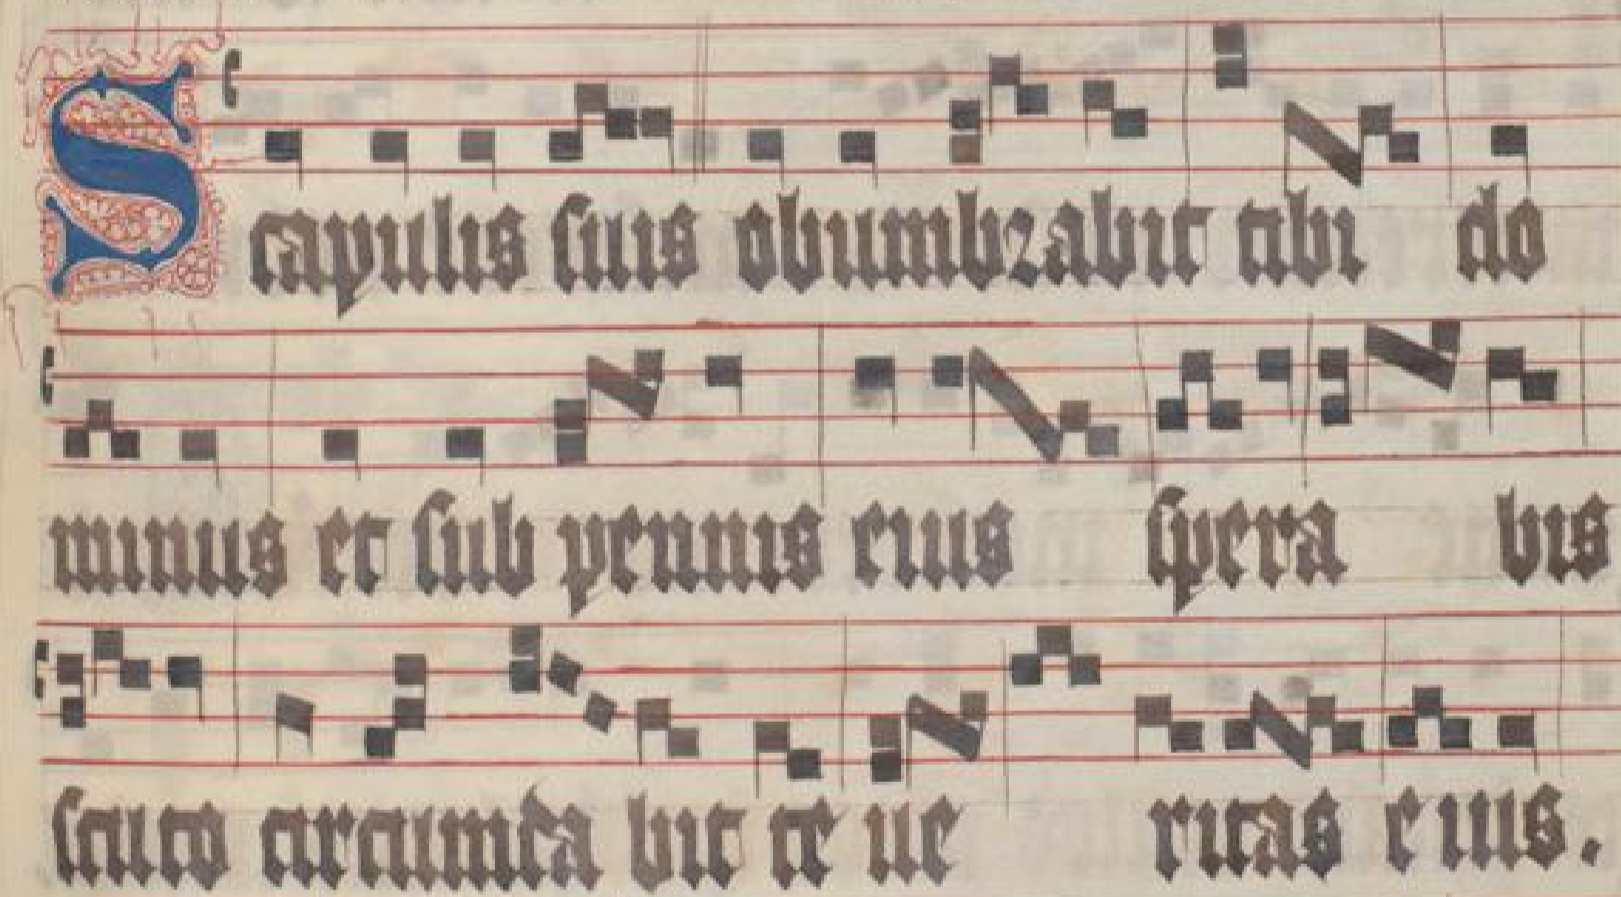 Scapulis suis obumbrabit tibi do
minus et sub pennis eius spera bis
scuto circumda bit te ue ritas eius.